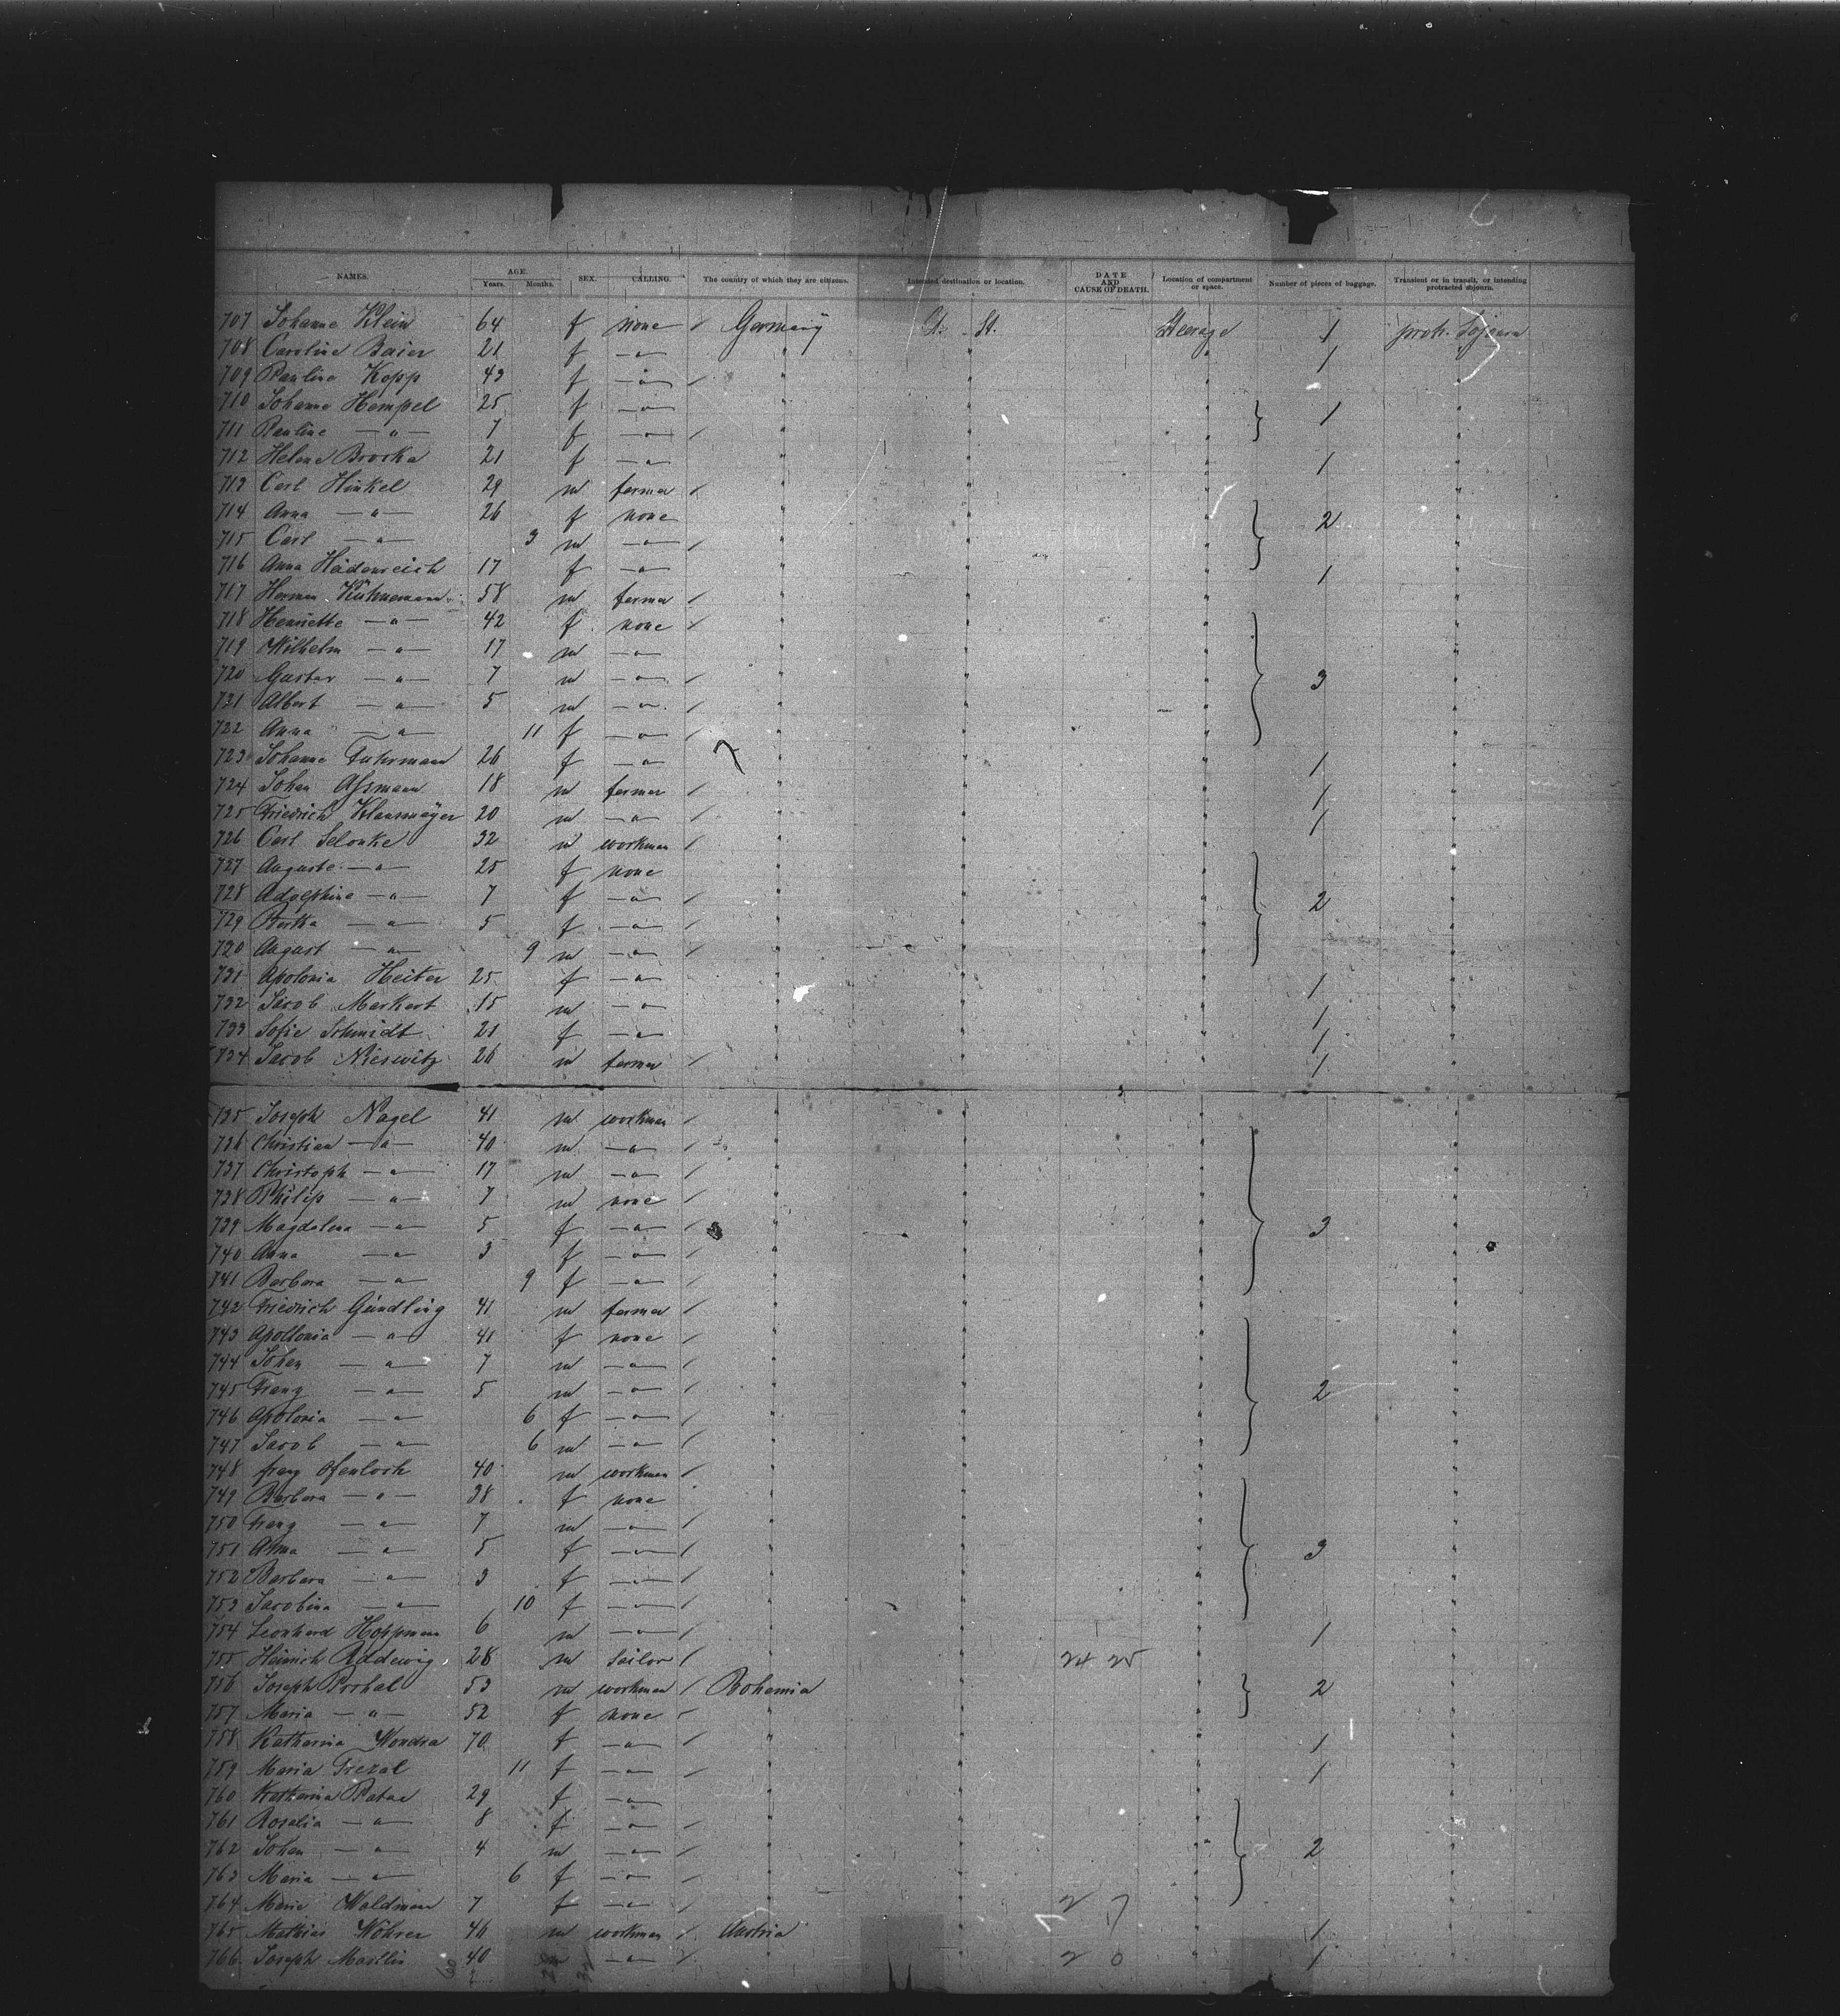 NAMES. AGE. Years. Months. SEX. CALLING. The country of which they are citizens. Intended destination or location. DATE AND CAUSE OF DEATH. Location of compartment or space. Number of pieces of baggage. Transient or in transit, or intending protracted sojourn.
707 Johanne Klein 64 f none / Germany U. St. Steerage 1 protr. Sojourn
708 Caroline Baier 21 f —"— " " " 1 "
709 Pauline Kopp 43 f —"— / " " " "
710 Johanne Hempel 25 f —"— " " " } 1 "
711 Pauline —"— 7 f —"— / " " " "
712 Helene Broska 21 f —"— " " " 1 "
713 Carl Hinkel 29 m farmer / " " " "
714 Anna —"— 26 f none " " " } 2 "
715 Carl —"— 3 m —"— / " " " "
716 Anna Heidenreich 17 f —"— " " " 1 "
717 Herman Kühnemann 58 m farmer / " " " "
718 Henriette —"— 42 f none / " " " "
719 Wilhelm —"— 17 m —"— " " " "
720 Gustav —"— 7 m —"— / " " " } 3 "
721 Albert —"— 5 m —"— / " " " "
722 Anna —"— 11 f —"— / " " " "
723 Johanne Fuhrmann 26 f —"— " " " 1 "
724 Johan Assmann 18 m farmer / " " " 1 "
725 Friedrich Klausmeyer 20 m —"— / " " " 1 "
726 Carl Selonke 32 m workman / " " " "
727 Auguste —"— 25 f none " " " "
728 Adolphine —"— 7 f —"— / " " " } 2 "
729 Bertha —"— 5 f —"— / " " " "
730 August —"— 9 m —"— / " " " "
731 Apolonia Heiter 25 f —"— " " " 1 "
732 Jacob Markert 15 m —"— " " " 1 "
733 Sofie Schmidt 21 f —"— " " " 1 "
734 Jacob Nieswitz 26 m farmer / " " " 1 "
735 Joseph Nagel 41 m workman / " " " "
736 Christian —"— 40 m —"— / " " " "
737 Christoph —"— 17 m —"— / " " " "
738 Philip —"— 7 m none / " " " "
739 Magdalena —"— 5 f —"— / " " " } 3 "
740 Anna —"— 3 f —"— / " " " "
741 Barbara —"— 9 f —"— / " " " "
742 Friedrich Gündling 41 m farmer / " " " "
743 Apollonia —"— 41 f none / " " " "
744 Johan —"— 7 m —"— / " " " "
745 Franz —"— 5 m —"— / " " " } 2 "
746 Apolonia —"— 6 f —"— / " " " "
747 Jacob —"— 6 m —"— / " " " "
748 Franz Ofenloch 40 m workman / " " " "
749 Barbara —"— 38 f none " " " "
750 Franz —"— 7 m —"— / " " " "
751 Anna —"— 5 f —"— / " " " } 3 "
752 Barbara —"— 3 f —"— / " " " "
753 Jacobina —"— 10 f —"— / " " " "
754 Leonhard Hoppmann 6 m —"— / " " " 1 "
755 Heinrich Addewig 28 m Sailor / " " 24 25 " "
756 Joseph 53 m workman / Bohemia " " } 2 "
757 Maria —"— 52 f none / " " " "
758 Katharina Wondra 70 f —"— / " " " 1 "
759 Maria 11 f —"— / " " " 1 "
760 Katharina 29 f —"— " " " "
761 Rosalia —"— 8 f —"— / " " " "
762 Johan —"— 4 m —"— / " " " } 2 "
763 Maria —"— 6 f —"— / " " " "
764 Marie Waldman 7 f —"— / " " " "
765 Mathias Wöhrer 46 m workman / Austria " " 1 "
766 Joseph 40 m —"— / " " 2 0 " 1 "